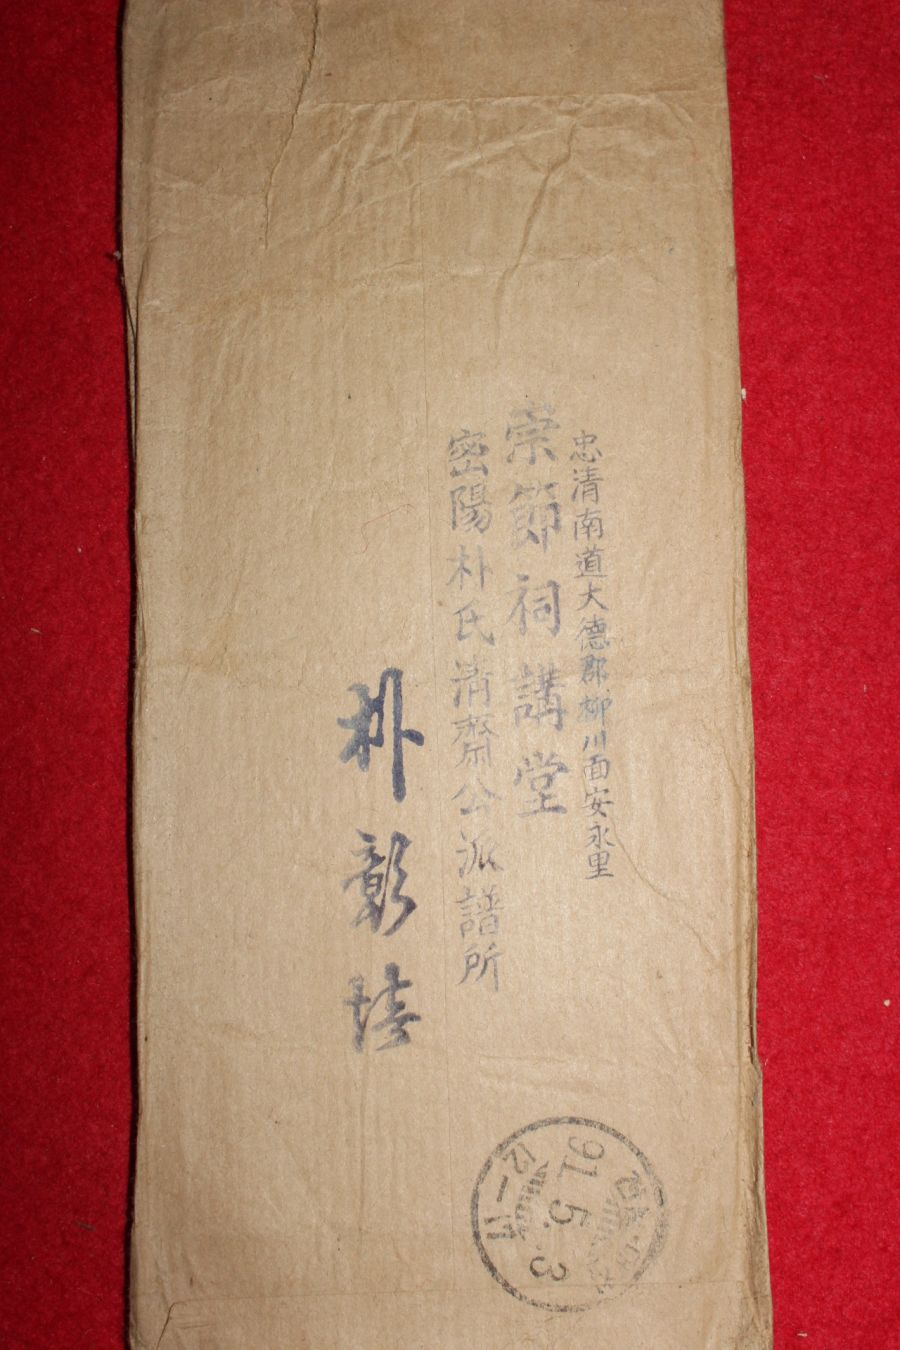 忠清南道大德郡柳川面安永里
崇節祠講堂
密陽朴氏清齋公派譜所
朴彰
5. 3